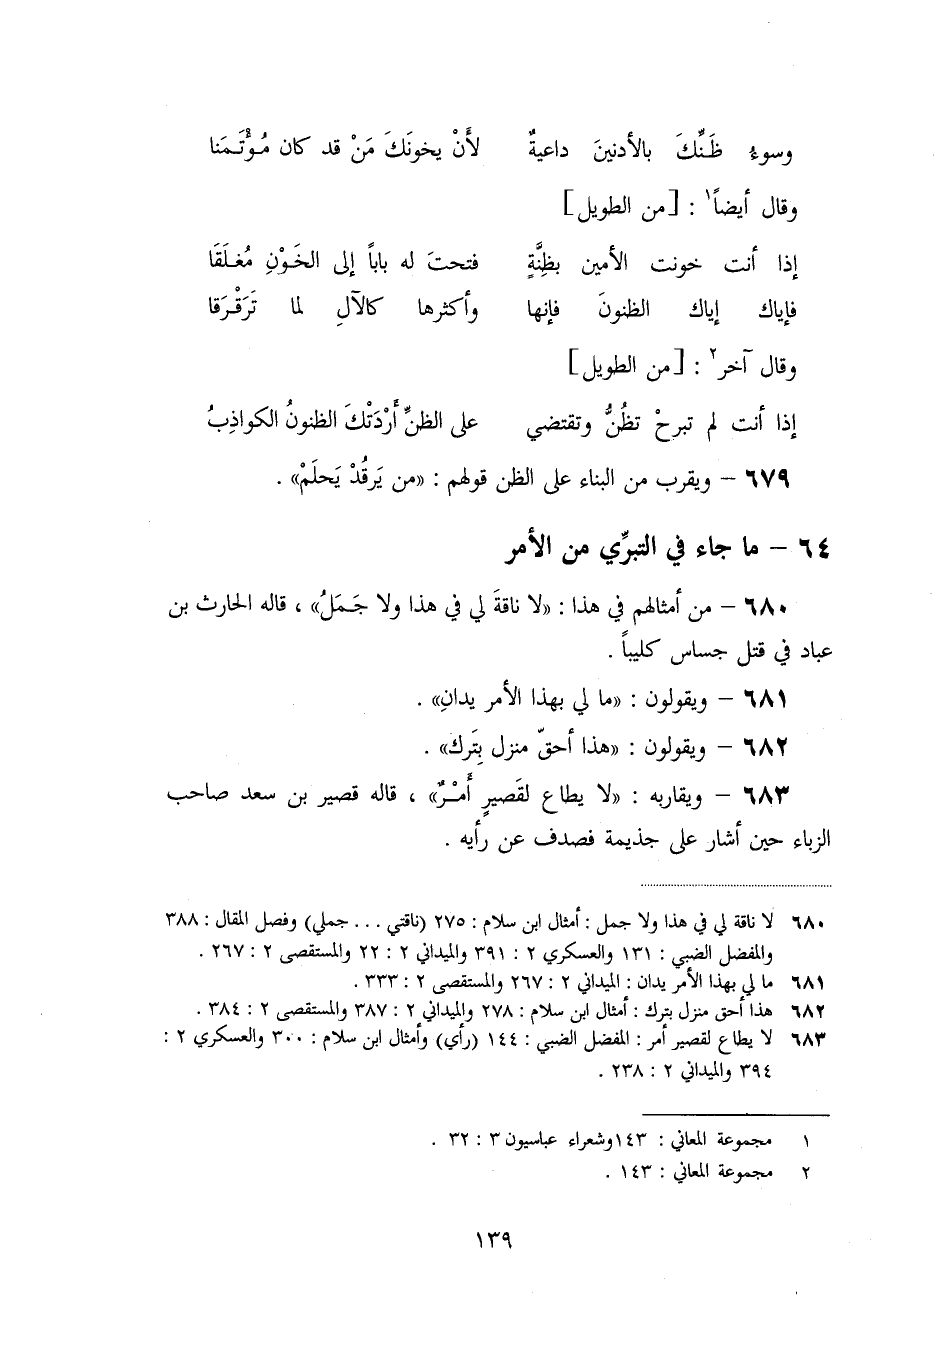 وسوءُ ظَنِّكَ بالأدنينَ داعيةٌ لأَنْ يخونَكَ مَنْ قد كان مُؤْتَمَنا
وقال أيضاً١ : [من الطويل]
إذا أنت خونت الأمين بظِنَّةٍ فتحتَ له باباً إلى الخَوْنِ مُغلَقَا
فإياك إياك الظنونَ فإنها وأكثرها كالآلِ لما تَرَقْرَقا
وقال آخر٢ : [من الطويل]
إذا أنت لم تبرحْ تظُنُّ وتقتضي على الظنِّ أَرْدَتْكَ الظنونُ الكواذِبُ
٦٧٩ – ويقرب من البناء على الظن قولهم : «من يَرقُدْ يَحلَمْ» .
٦٤ – ما جاء في التبرِّي من الأمر
٦٨٠ – من أمثالهم في هذا : «لا ناقةَ لي في هذا ولا جَمَلُ» ، قاله الحارث بن
عباد في قتل جساس كليباً .
٦٨١ – ويقولون : «ما لي بهذا الأمر يدانِ» .
٦٨٢ – ويقولون : «هذا أحقّ منزل بِتَرك» .
٦٨٣ – ويقاربه : «لا يطاع لقَصيرٍ أَمْرٌ» ، قاله قصير بن سعد صاحب
الزباء حين أشار على جذيمة فصدف عن رأيه .
٦٨٠ لا ناقة لي في هذا ولا جمل : أمثال ابن سلام : ٢٧٥ (ناقتي ... جملي) وفصل المقال : ٣٨٨
والمفضل الضبي : ١٣١ والعسكري ٢ : ٣٩١ والميداني ٢ : ٢٢ والمستقصى ٢ : ٢٦٧ .
٦٨١ ما لي بهذا الأمر يدان : الميداني ٢ : ٢٦٧ والمستقصى ٢ : ٣٣٣ .
٦٨٢ هذا أحق منزل بترك : أمثال ابن سلام : ٢٧٨ والميداني ٢ : ٣٨٧ والمستقصى ٢ : ٣٨٤ .
٦٨٣ لا يطاع لقصير أمر : المفضل الضبي : ١٤٤ (رأي) وأمثال ابن سلام : ٣٠٠ والعسكري ٢ :
٣٩٤ والميداني ٢ : ٢٣٨ .
١ مجموعة المعاني : ١٤٣وشعراء عباسيون ٣ : ٣٢ .
٢ مجموعة المعاني : ١٤٣ .
١٣٩